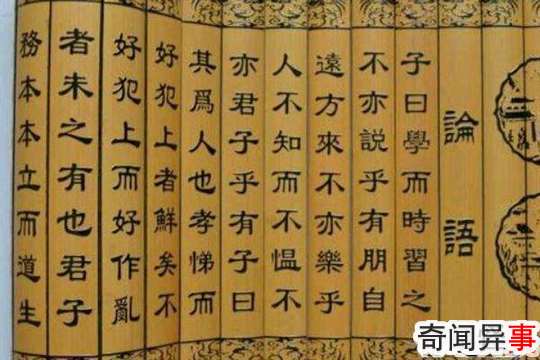 論語
子曰學而時習之
不亦說乎有朋自
遠方來不亦樂乎
人不知而不愠不
亦君子乎有子曰
其爲人也孝悌而
好犯上者鮮矣不
好犯上而好作亂
者未之有也君子
務本本立而道生
奇闻异事